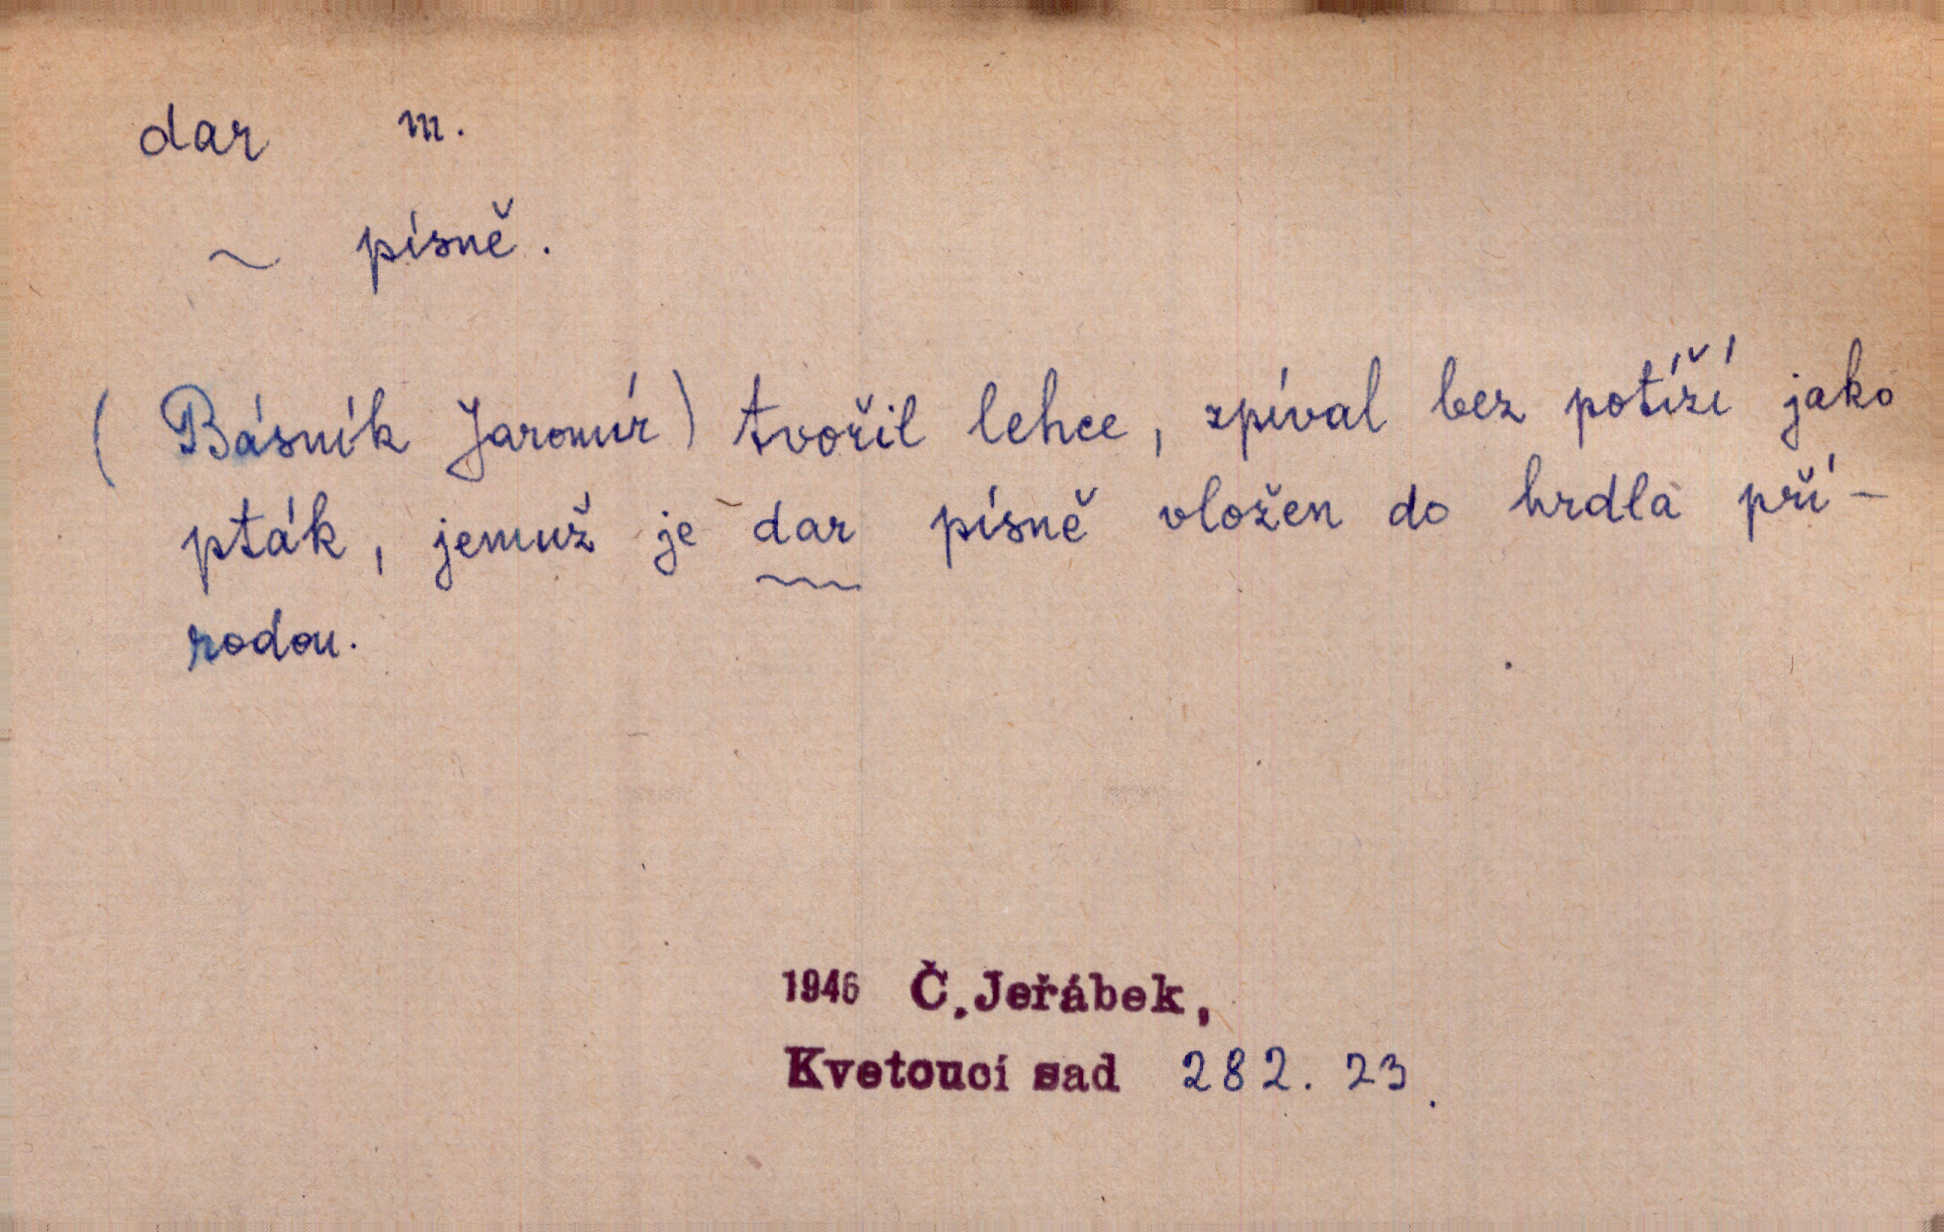 dar m.
~ písně.
(Básník Jaromír) tvořil lehce, zpíval bez potíží jako
pták, jemuž je dar písně vložen do hrdla pří-
rodou.
1946 Č.Jeřábek,
Kvetoucí sad 282. 23.